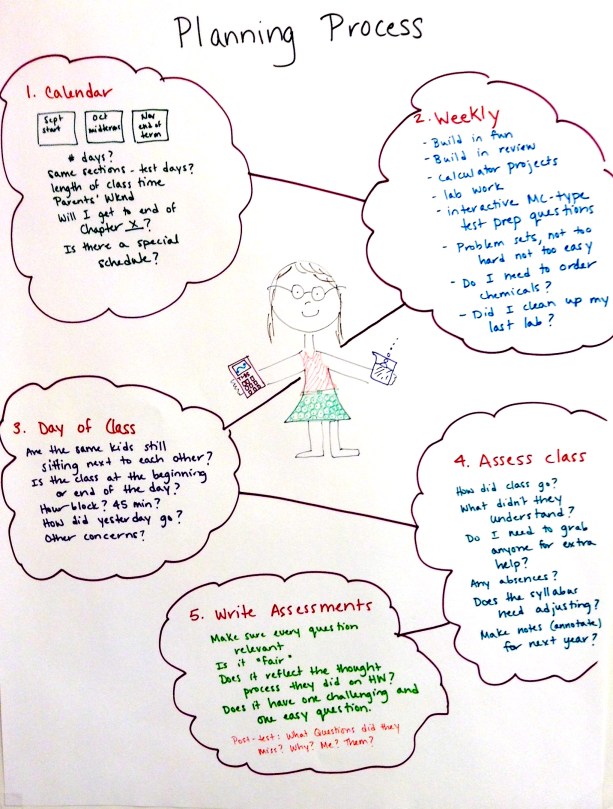 Planning Process
1. Calendar
Sept
start
Oct
midterms
Nov
end of
term
# days?
Same sections - test days?
length of class time
Parents' Wknd
Will I get to end of
Chapter X?
Is there a special
schedule?
2. Weekly
- Build in fun
- Build in review
- calculator projects
- lab work
- interactive MC-type
test prep questions
- Problem sets, not too
hard not too easy
- Do I need to order
chemicals?
- Did I clean up my
last lab?
3. Day of Class
Are the same kids still
sitting next to each other?
Is the class at the beginning
or end of the day?
Hour block? 45 min?
How did yesterday go?
Other concerns?
4. Assess class
How did class go?
What didn't they
understand?
Do I need to grab
anyone for extra
help?
Any absences?
Does the syllabus
need adjusting?
Make notes (annotate)
for next year?
5. Write Assessments
Make sure every question
relevant
Is it "fair"
Does it reflect the thought
process they did on HW?
Does it have one challenging and
one easy question.
Post-test: What Questions did they
miss? Why? Me? Them?